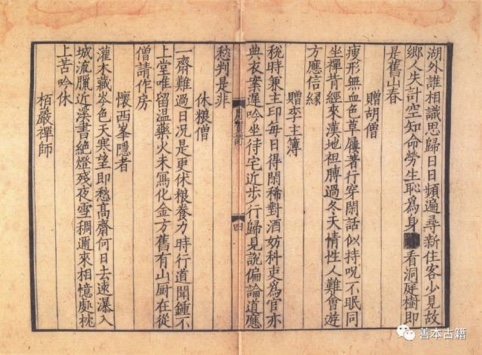 湖外誰相識思歸日日頻遍尋新住客少見故
鄉人失計空知命勞生恥為身看洞庭樹即
是舊山春
贈胡僧
瘦形無血色草屨著行穿閑話似持呪不眠同
坐禪背經來漢地袒膊過冬天情性人難會遊
方應信緣
贈李主簿
稅時兼主印每日得閑稀對酒妨科吏為官亦
典衣案遲吟坐待宅近步行歸見說偏論道應
愁判是非
休粮僧
一齋難過日况是更休粮養力時行道聞鍾不
上堂唯留温藥火未寫化金方舊有山厨在從
僧請作房
懷西峯隱者
灌木藏岑色天寒望即愁高齋何日去遠瀑入
城流臘近溪書絶燈殘夜雪稠邇來相憶處枕
上苦吟休
栢巖禪師
善本古籍